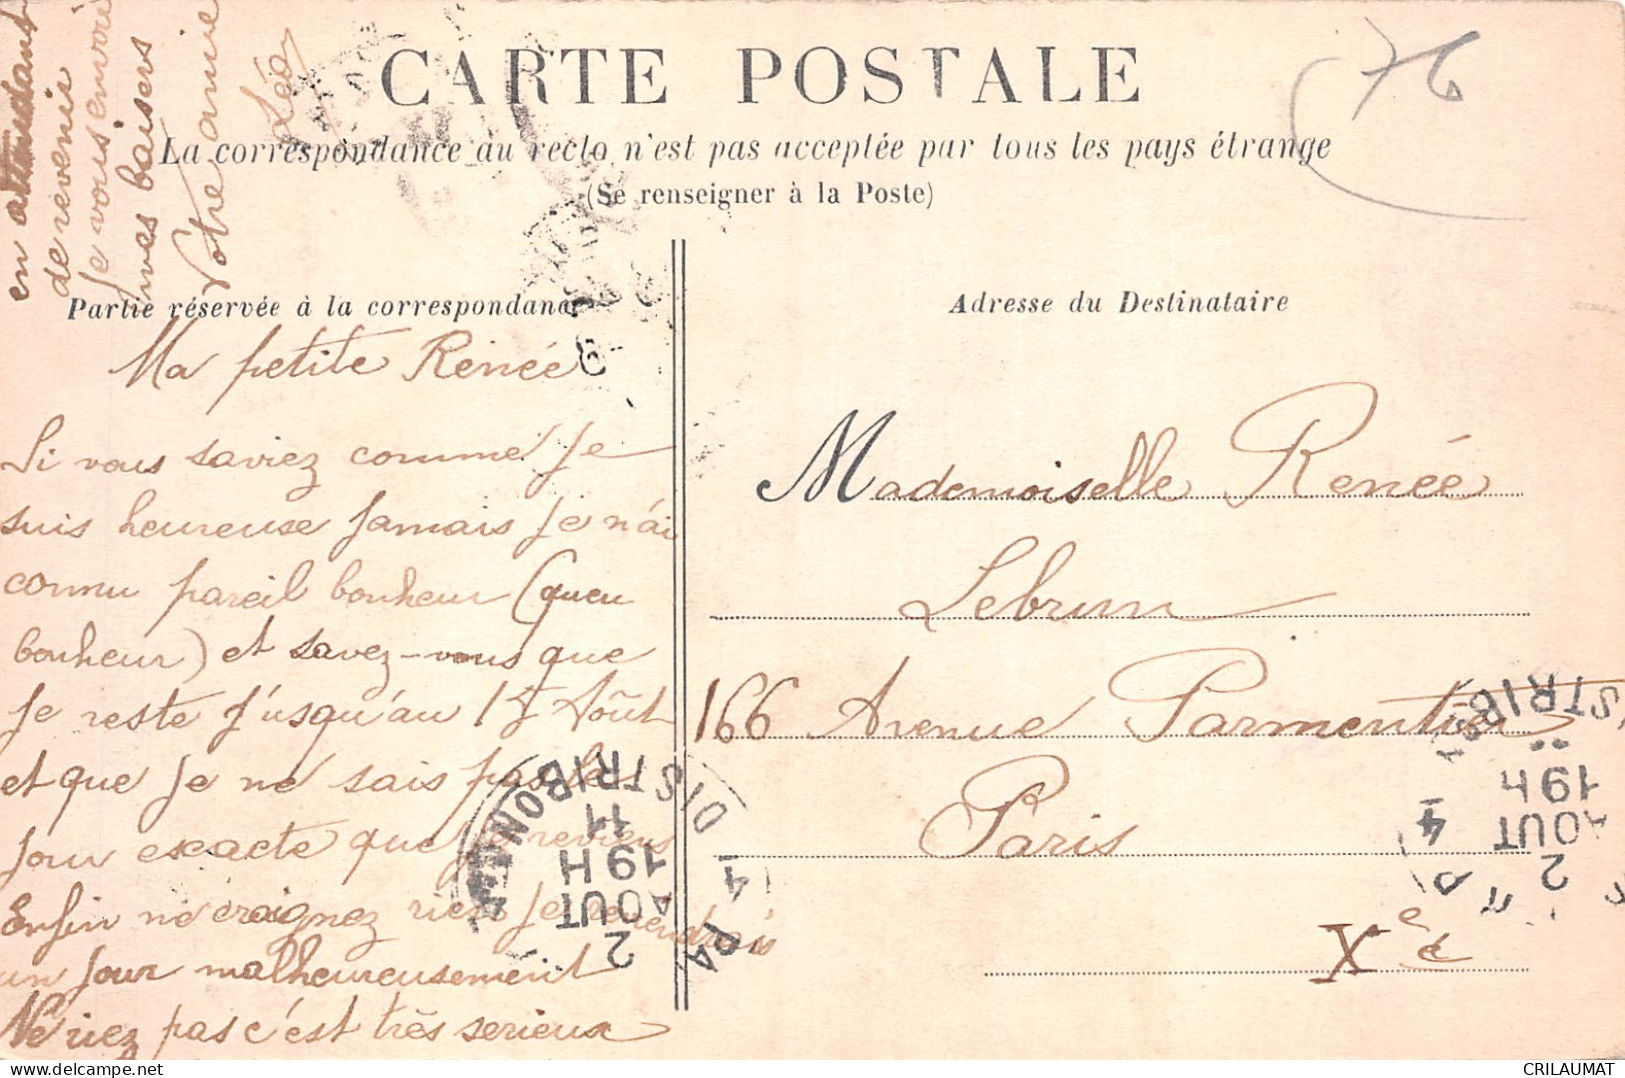 CARTE POSTALE
La correspondance au recto n'est pas acceptée par tous les pays étrange
(Se renseigner à la Poste)
76
Partie réservée à la correspondance
Adresse du Destinataire
Ma petite Renée
Si vous saviez comme je
suis heureuse jamais je n'ai
connu pareil bonheur (queu
bonheur) et savez-vous que
je reste jusqu'au 15 Août
et que je ne sais pas le
jour exacte que je reviens
Enfin ne craignez rien je reviendrais
un jour malheureusement
Ne riez pas c'est très serieux
en attendant
de revenir
je vous envoi
mes baisers
Votre amie
Léo
Mademoiselle Renée
Lebrun
166 Avenue Parmentier
Paris
Xe
DISTRIBON
11
19H
AOUT
2
PA
STRIB
19H
AOUT
2
CRILAUMAT